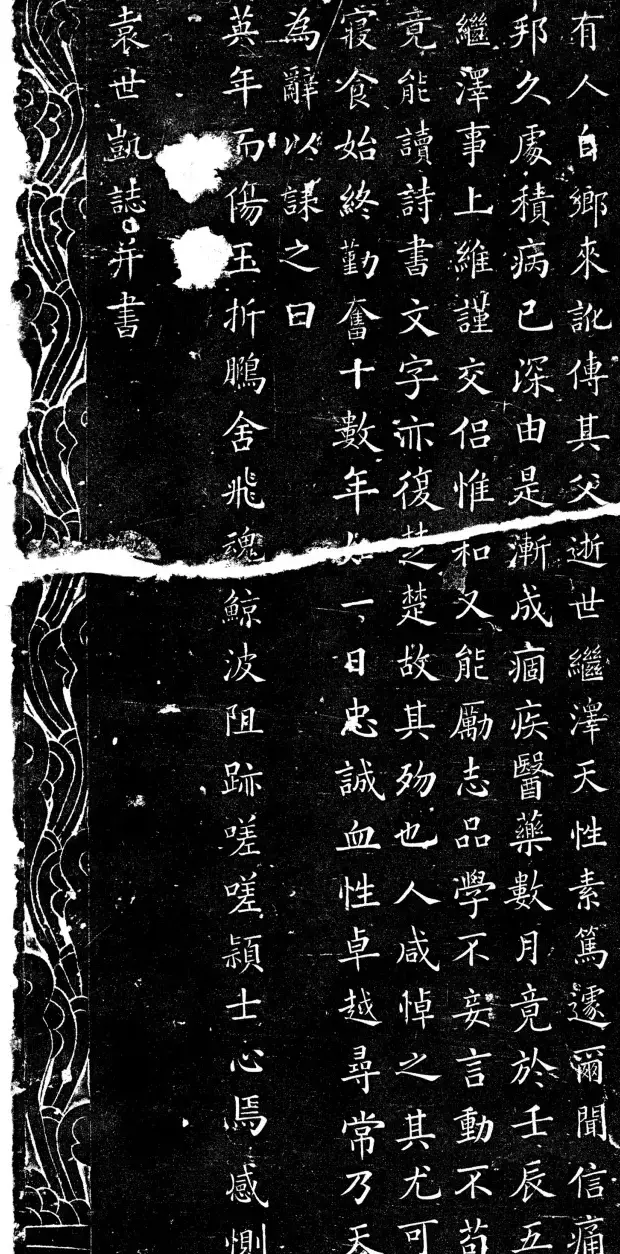 有人自鄉來訛傳其父逝世繼澤天性素篤遽爾聞信痛
邦久處積病已深由是漸成痼疾醫藥數月竟於壬辰五
繼澤事上維謹交侣惟和又能勵志品學不妄言動不苟
竟能讀詩書文字亦復楚楚故其殁也人咸悼之其尤可
寢食始終勤奮十數年如一日忠誠血性卓越尋常乃天
為辭以誄之曰
英年而傷玉折鵬舍飛魂鯨波阻跡嗟嗟穎士心焉感惻
袁世凱誌并書